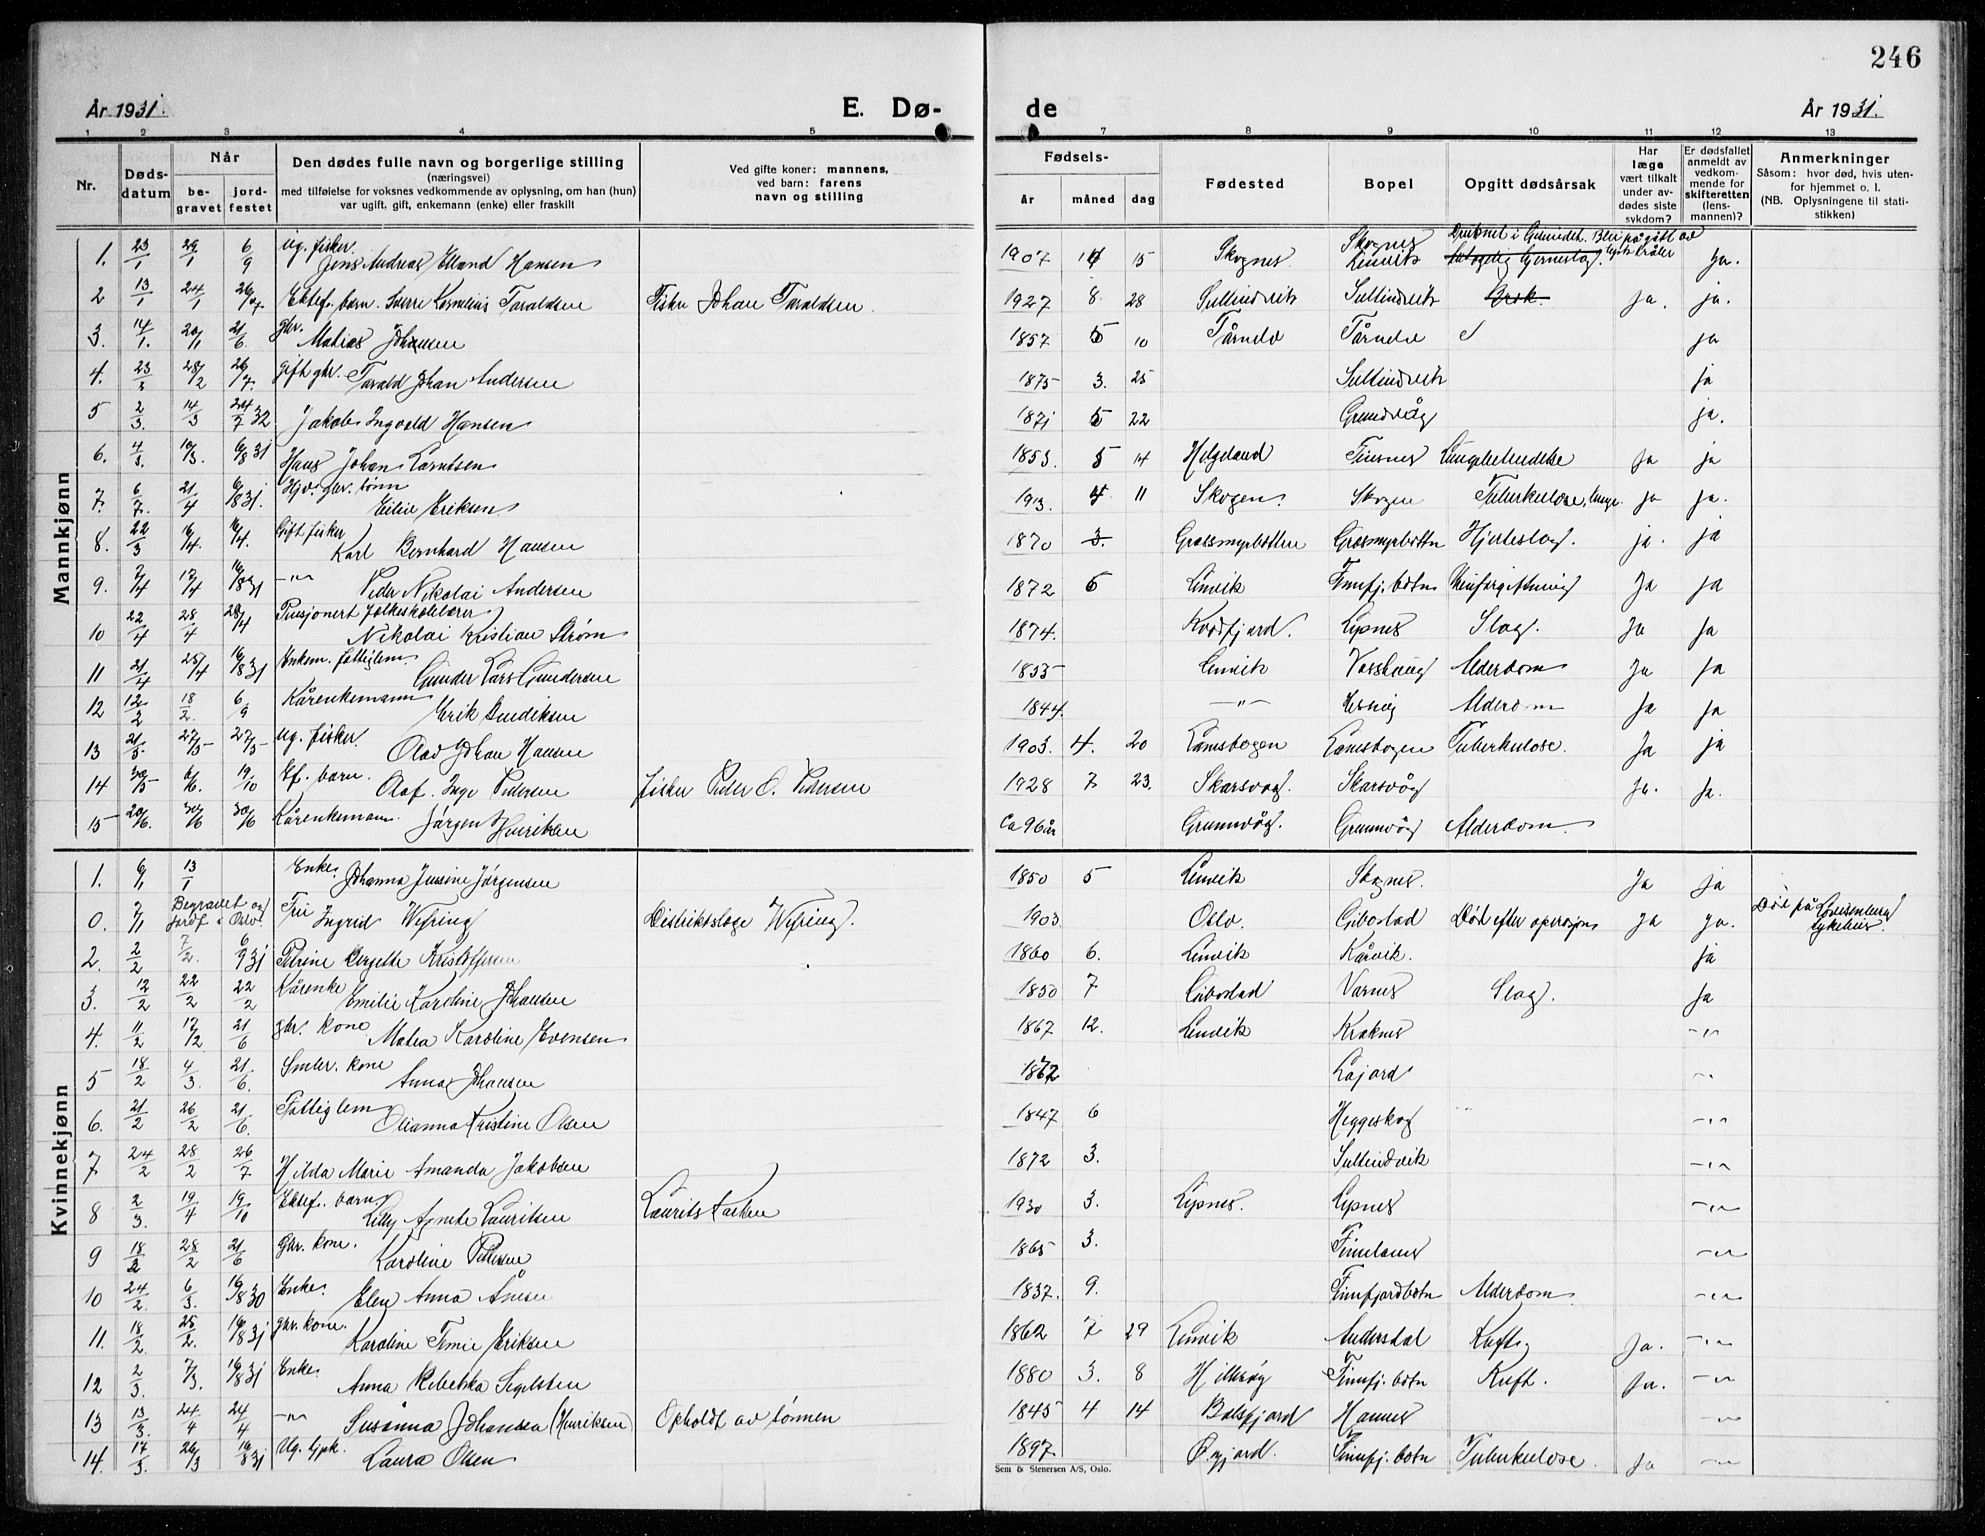 246
År 1931.
E. Dø-
de
År 1931.
1 2 3 4 5 7 8 9 10 11 12 13
Nr.
Døds-
datum
Når
be-
gravet
jord-
festet
Den dødes fulle navn og borgerlige stilling
(næringsvei)
med tilføielse for voksnes vedkommende av oplysning, om han (hun)
var ugift, gift, enkemann (enke) eller fraskilt
Ved gifte koner: mannens,
ved barn: farens
navn og stilling
Fødsels-
år
måned
dag
Fødested
Bopel
Opgitt dødsårsak
Har
læge
vært tilkalt
under av-
dødes siste
sykdom?
Er dødsfallet
anmeldt av
vedkom-
mende for
skifteretten
(lens-
mannen)?
Anmerkninger
Såsom: hvor død, hvis uten-
for hjemmet o. l.
(NB. Oplysningene til stati-
stikken)
Mannkjønn
1. 23/1 29/1 6/9 Ug. fisker Jens Andreas Elland Hansen 1907 15 Skognes Skognes Lenvik ja.
2 13/1 24/1 26/7 Ektef. barn. Sverre Kornelius Taraldsen Fisker Johan Taraldsen. 1927 8. 28 Sultindvik Sultindvik ja. ja.
3. 14/1. 20/1 21/6 gbr. Matias Johansen 1857 5 10 Tårnelv Tårnelv ja
4. 28/2 26/7. gift gbr. Tarald Johan Andersen 1875 3. 25 Sultindvik ja
5 2/3. 14/3 24/7 32 Jakob Ingvald Hansen 1871 5 22 Grunnvåg ja.
6. 4/3. 10/3. 6/8 31 Hans Johan Larntsen 1853. 5 14 Helgeland Finsnes Lungebetendelse Ja ja
7. 21/4 6/8 31. Gbr. sønn Eilif Eriksen 1913. 4 11 Skogen Skogen Tuberkulose, lunge ja ja.
8. 22/3 16/4. 16/4. Gift fisker Karl Bernhard Hansen 1870 3. Grassmyrbotten Grasmyrbottn Hjerteslag. ja. ja
9. 7/4 17/4 16/8 31 -"- Peder Nikolai Andersen 1872 6 Lenvik Finnfj. botn Ja ja
10 22/4 28/4 28/4 Pensjonert folkeskolelærer Nikolai Kristian Strøm 1874. Kvæfjord. Lysnes Slag. Ja Ja
11 21/4 25/4 16/8 31 Enkem. fattiglem Gunder Lars Gundersen 1853 Lenvik Vasshaug Alderdom Ja Ja
12 12/2 18/2. 6/9 Kårenkemann Erik Hendriksen 1844. -"- Alderdom Ja ja
13 21/5. 27/5 27/5 Ug. fisker. Olav Johan Hansen 1903. 4. 20 Lånesbogen Lånesbogen Tuberkulose. Ja ja
14 30/5 6/6. 19/10 Ef. barn. Olaf Inge Pedersen fisker Peder O. Pedersen 1928 7 23. Skarsvåg. Skarsvåg ja. Ja.
15 20/6. 30/6 30/6 Kårenkemann. Jørgen Henriksen Ca 96 år Grunnvåg. Grunnvåg Alderdom.
Kvinnekjønn
1. 6/1 13/1 Enke. Johanna Jensine Jørgensen 1850 5 Lenvik Skognes. Ja ja
0. 2/1 Begravet og jordf. i Oslo. Frú Ingrid Wefring Distriktslæge Wefring. 1903 Oslo. Gibostad Død efter operasjon Ja ja. Død på Lovisenberg sykehus.
2. 2/2 7/2. 6/9 31 Petrine Bergette Kristoffersen 1860 6. Lenvik Kårvik. ja
3. 12/2 22/2 22/2 Kårenke Emilie Karoline Johansen 1850 7 Gibostad Varnes Slag. Ja
4. 11/2 17/2. 21/6 gbr. kone Matea Karoline Evensen 1867 12. Lenvik Kraknes -"-
5 18/2 4/3. 21/6. kone Anna Johansen 1862 Lajord -"-
6. 21/2 26/2 21/6. Fattiglem Olianna Kristine Olsen 1847 6 Heggeskog -"-
7 24/2 28/2 26/7 Hilda Marie Amanda Jakobsen 1872 3. Sultindvik -"-
8 2/3. 19/4 19/10 Ektef. barn Lilly Agnete Lauritsen Laurits 1930 3. Lysnes. Lysnes -"-
9 18/2 28/2 21/6 Gbr. kone. Karoline Pedersen 1865 3. Finnlandnes -"-
10 24/2. 6/3. 16/8 30 Enke. Elen Anna Ånesen 1837. 9. Finnfjordbotn Alderdom. -"-
11. 18/2. 25/2. 16/8 31 gbr. kone. Karoline Eriksen 1862 7 29 Lenvik Andersdal Kreft Ja. -"-
12 2/3. 7/3. 16/8 31 Enke. Anna Rebekka Sigelsten 1880 3. 8 Hillesøy Finnfj. botn Kreft. Ja. -"-
13 13/3. 24/4 24/4 -"- Susanna Johansen (Henriksen) Opholdt av sønnen 1845 4 14 Balsfjord -"-
14. 17/3. 26/3 16/8 31 Ug. Laura Olsen 1897. Øyjord. Finnfj. botn Tuberkulose. Ja -"-
Sem & Stenersen A/S, Oslo.